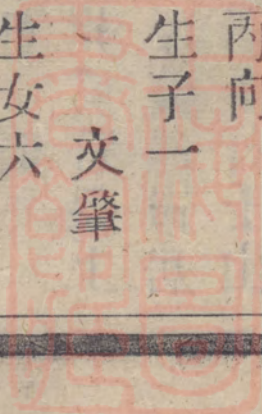 丙向
生子一
文肇
生女六